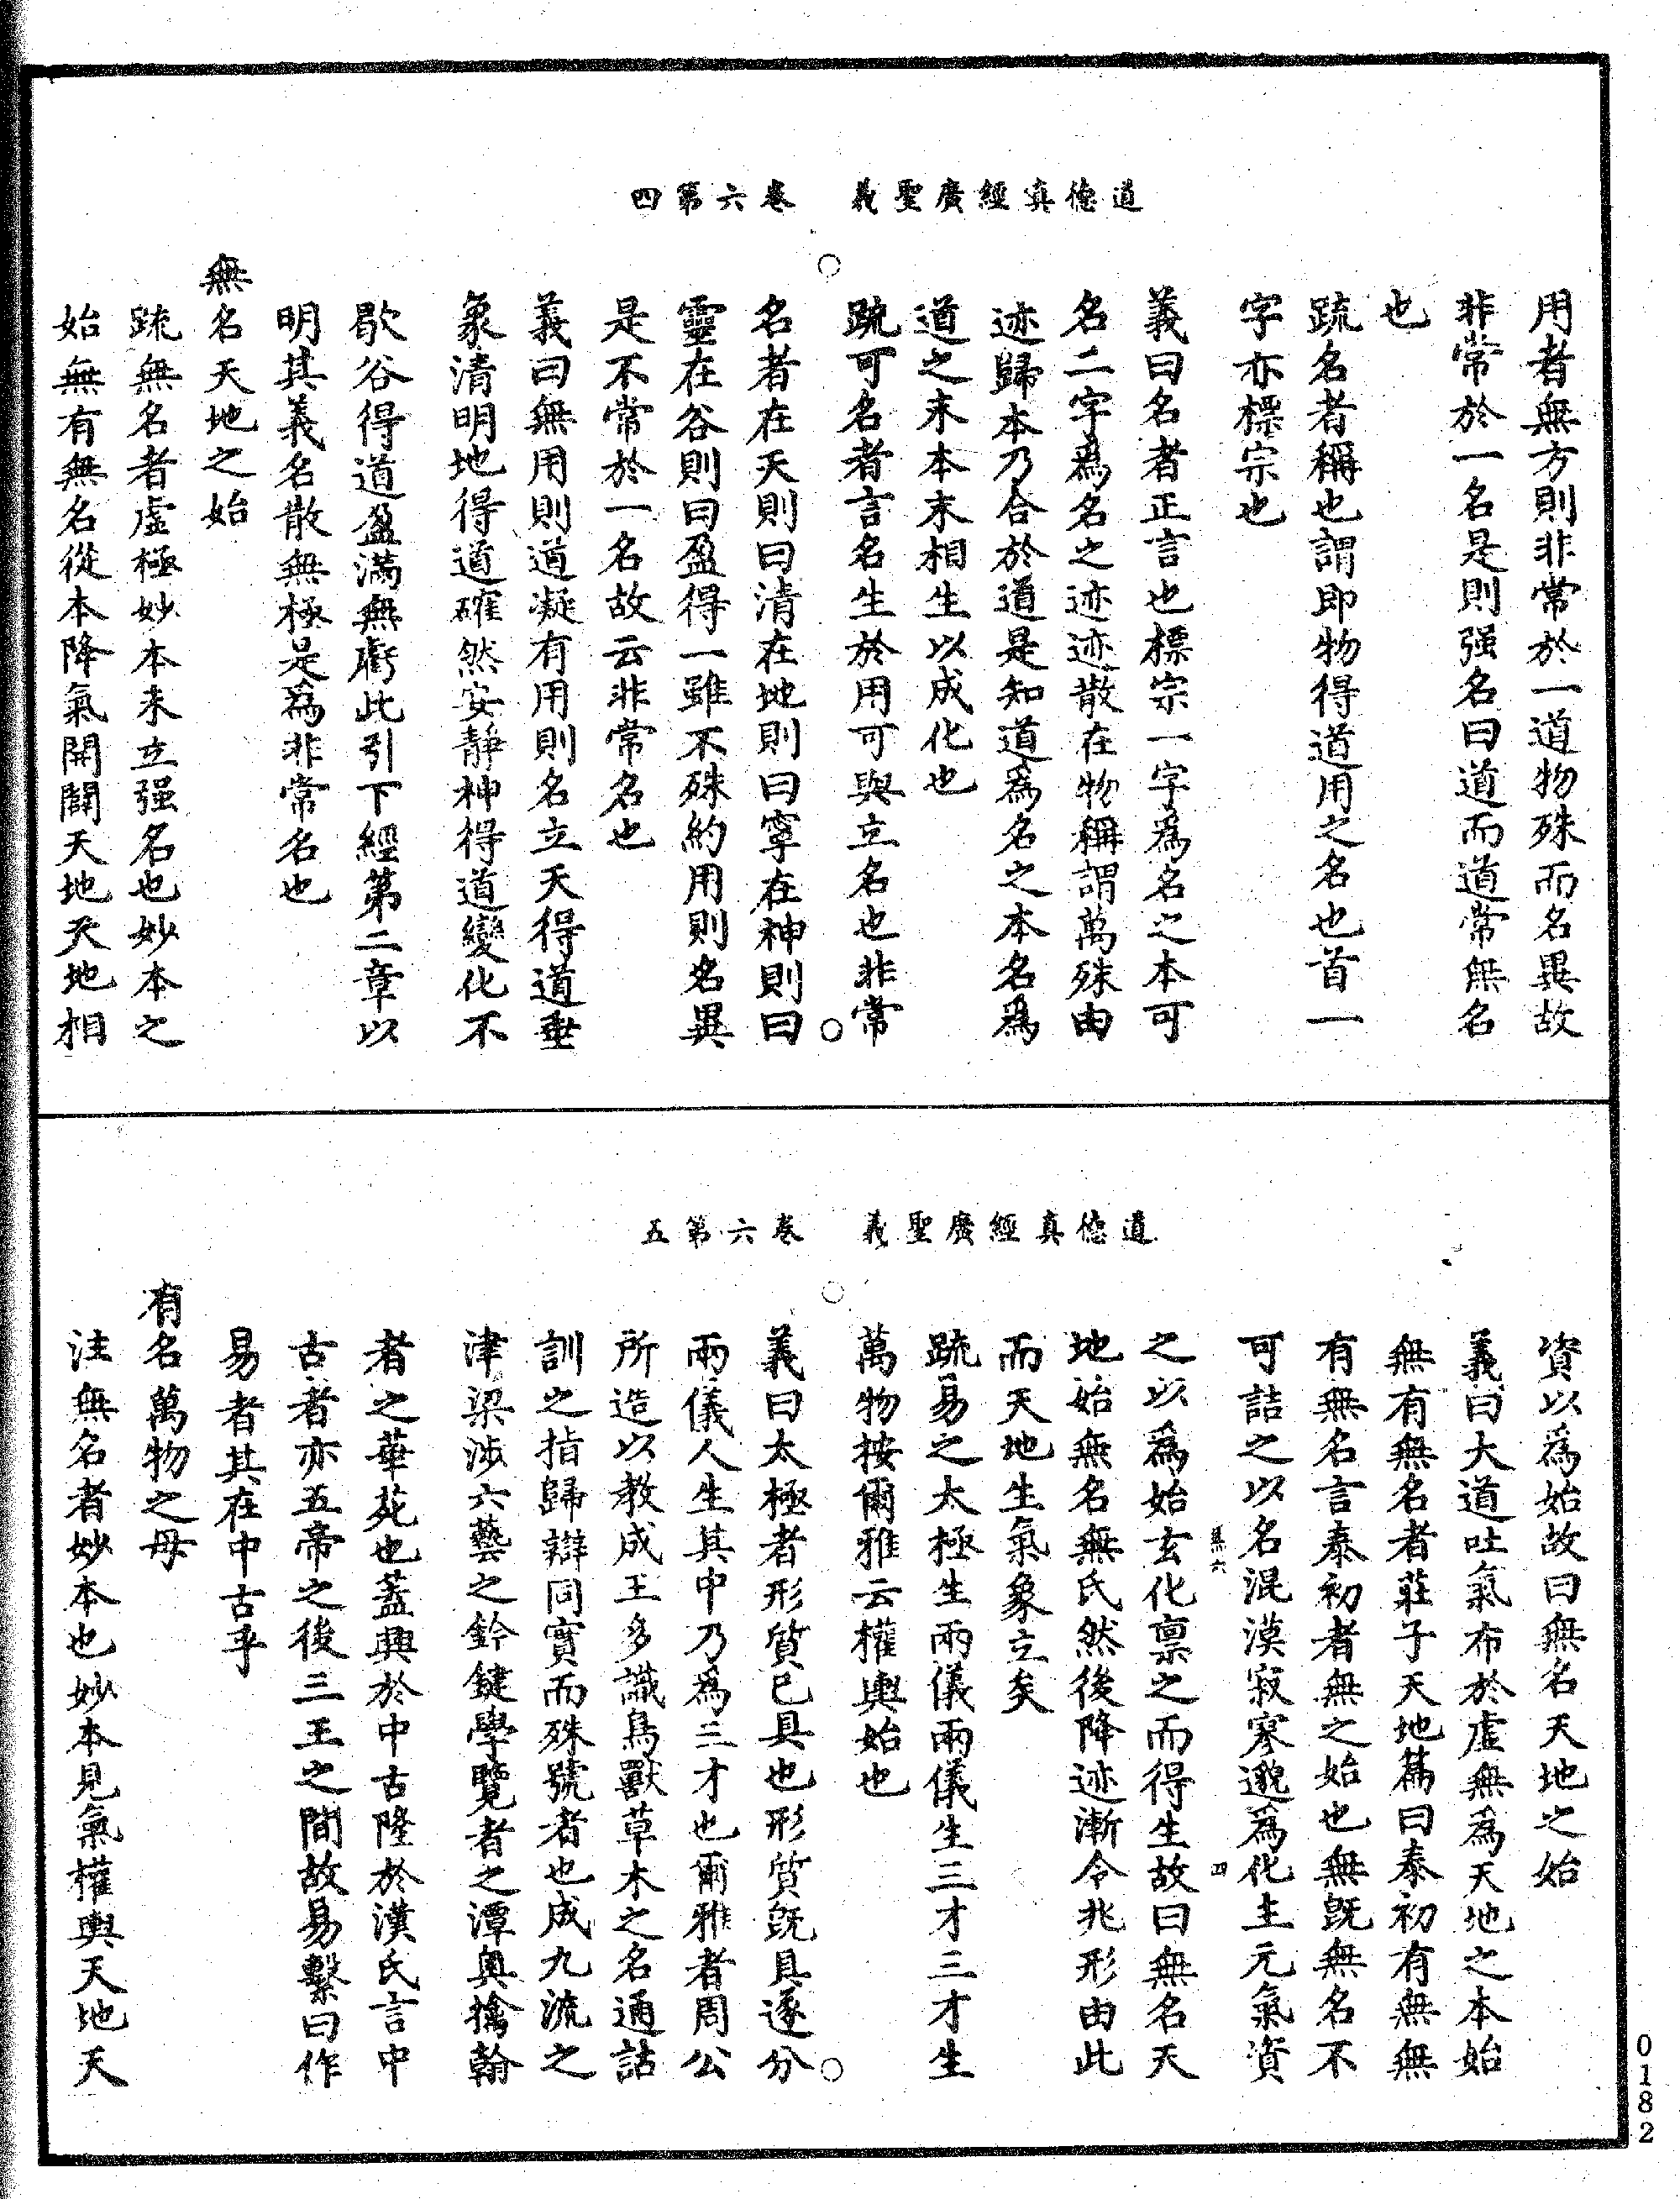 道德真經廣聖義　卷六第四
用者無方則非常於一道物殊而名異故
非常於一名是則强名曰道而道常無名
也
疏名者稱也謂即物得道用之名也首一
字亦標宗也
義曰名者正言也標宗一字爲名之本可
名二字爲名之迹迹散在物稱謂萬殊由
迹歸本乃合於道是知道爲名之本名爲
道之末本末相生以成化也
疏可名者言名生於用可與立名也非常
名者在天則曰清在地則曰寧在神則曰
靈在谷則曰盈得一雖不殊約用則名異
是不常於一名故云非常名也
義曰無用則道凝有用則名立天得道垂
象清明地得道確然安靜神得道變化不
歇谷得道盈滿無虧此引下經第二章以
明其義名散無極是爲非常名也
無名天地之始
疏無名者虛極妙本未立强名也妙本之
始無有無名從本降氣開闢天地天地相
道德真經廣聖義　卷六第五
資以爲始故曰無名天地之始
義曰大道吐氣布於虛無爲天地之本始
無有無名者莊子天地篇曰泰初有無無
有無名言泰初者無之始也無既無名不
可詰之以名混漠寂寥邈爲化主元氣資
之以爲始玄化禀之而得生故曰無名天
地始無名無氏然後降迹漸令兆形由此
而天地生氣象立矣
疏易之太極生兩儀兩儀生三才三才生
萬物按爾雅云權輿始也
義曰太極者形質已具也形質既具遂分
兩儀人生其中乃爲三才也爾雅者周公
所造以教成王多識鳥獸草木之名通詁
訓之指歸辯同實而殊號者也成九流之
津梁涉六藝之鈐鍵學覽者之潭奧摛翰
者之華苑也蓋興於中古隆於漢氏言中
古者亦五帝之後三王之間故易繫曰作
易者其在中古乎
有名萬物之母
注無名者妙本也妙本見氣權輿天地天
0182